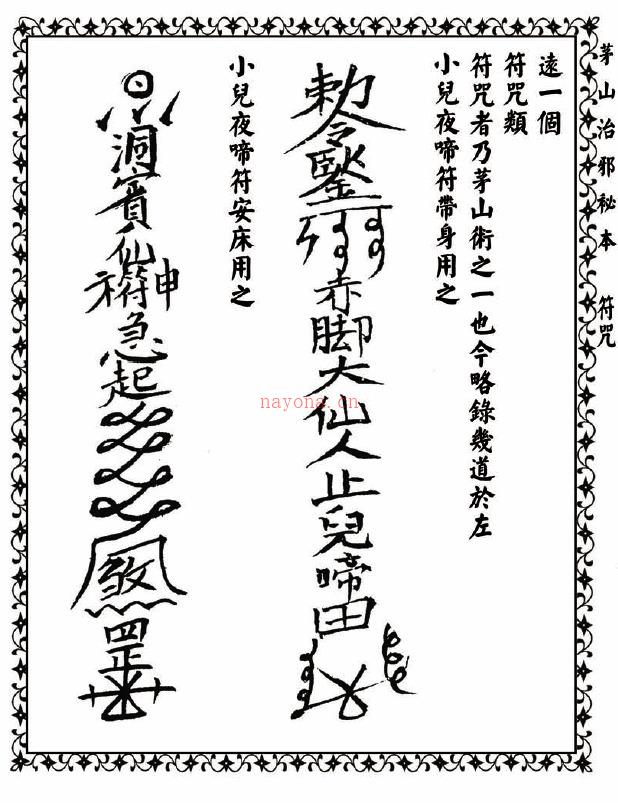 茅山治邪秘本 符咒
遠一個
符咒類
符咒者乃茅山術之一也今略錄幾道於左
小兒夜啼符帶身用之
勅令
赤脚大仙人止兒啼
小兒夜啼符安床用之
洞賓仙
神符急起
煞
罡
nayona.cn